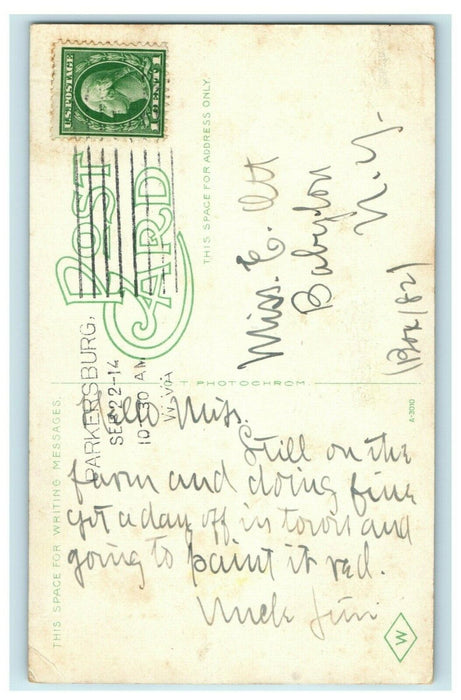 U.S. POSTAGE
1 CENT 1
POST CARD
THIS SPACE FOR ADDRESS ONLY.
PARKERSBURG,
SEP 22-14
10 30 AM
W.VA
Miss. E. Ott
Babylon
N. Y.
(Box 182)
T PHOTOCHROM
A-3010
THIS SPACE FOR WRITING MESSAGES.
Hello Miss.
Still on the
farm and doing fine
got a day off in town and
going to paint it red.
Uncle Jim
W